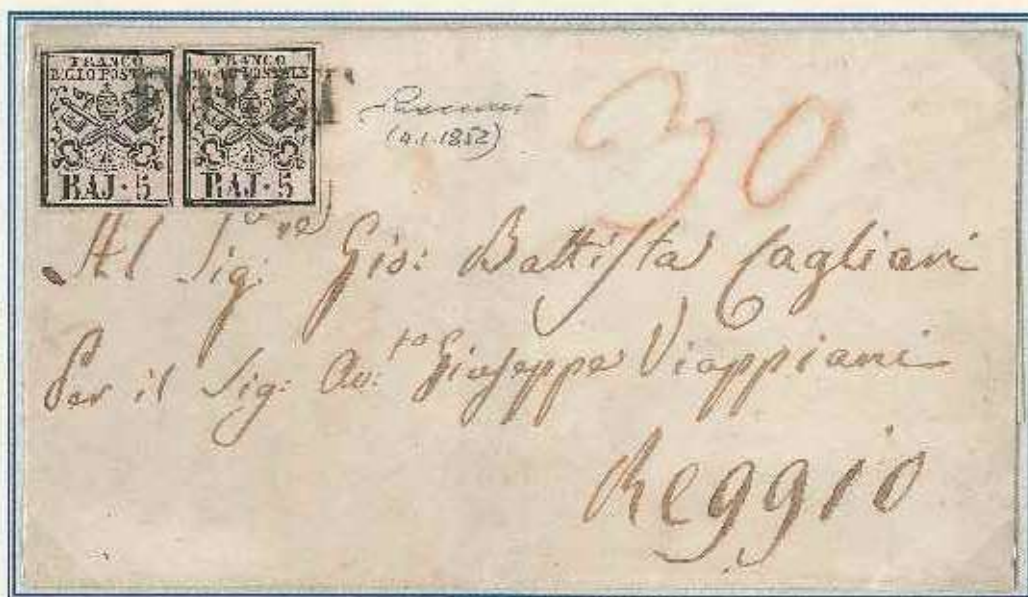 FRANCO
BOLLO POSTALE
BAJ · 5
FRANCO
BOLLO POSTALE
BAJ · 5
(4.1.1852)
30
Al Sig:re Gio: Battista Cagliari
Per il Sig: Av:to Giuseppe Viappiani
Reggio